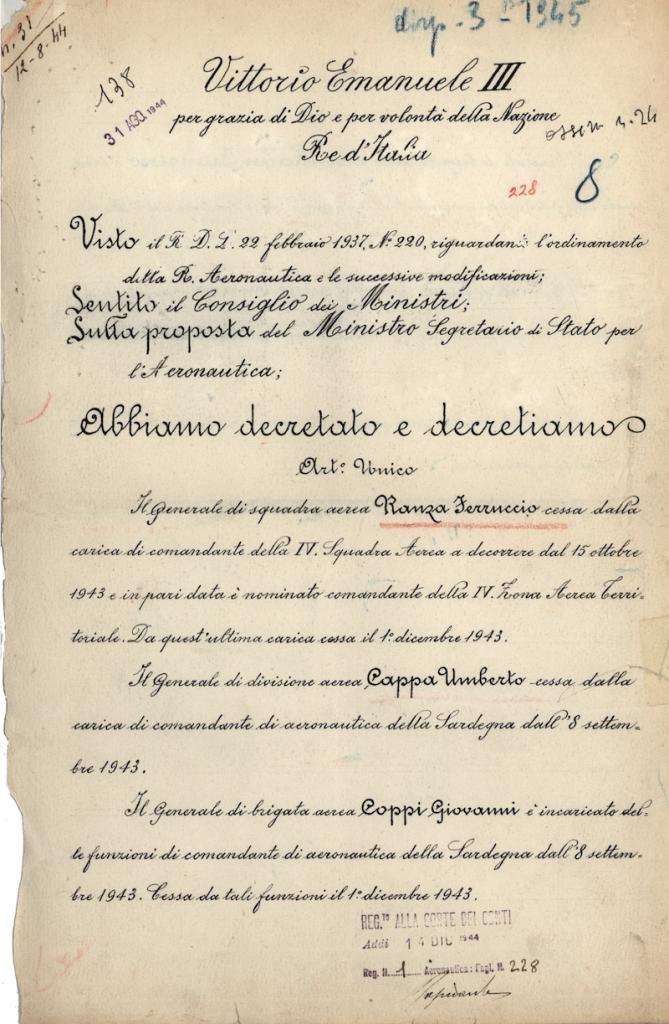 n. 31
12-8-44
disp. 3ª 1945
138
31 AGO. 1944
Vittorio Emanuele III
per grazia di Dio e per volontà della Nazione
n. 24
Re d'Italia
228
8
Visto il R. D. L. 22 febbraio 1937, Nº 220, riguardan l'ordinamento
della R. Aeronautica e le successive modificazioni;
Sentito il Consiglio dei Ministri;
Sulla proposta del Ministro Segretario di Stato per
l'Aeronautica;
Abbiamo decretato e decretiamo
Art.º Unico
Il Generale di squadra aerea Ranza Ferruccio cessa dalla
carica di comandante della IV. Squadra Aerea a decorrere dal 15 ottobre
1943 e in pari data è nominato comandante della IV. Zona Aerea Terri-
toriale. Da quest'ultima carica cessa il 1º dicembre 1943.
Il Generale di divisione aerea Cappa Umberto cessa dalla
carica di comandante di aeronautica della Sardegna dall'8 settem-
bre 1943.
Il Generale di brigata aerea Coppi Giovanni è incaricato del-
le funzioni di comandante di aeronautica della Sardegna dall'8 settem-
bre 1943. Cessa da tali funzioni il 1º dicembre 1943.
REG.TO ALLA CORTE DEI CONTI
Addì 14 DIC 1944
Reg. N. 1 Aeronautica: Fogl. N. 228